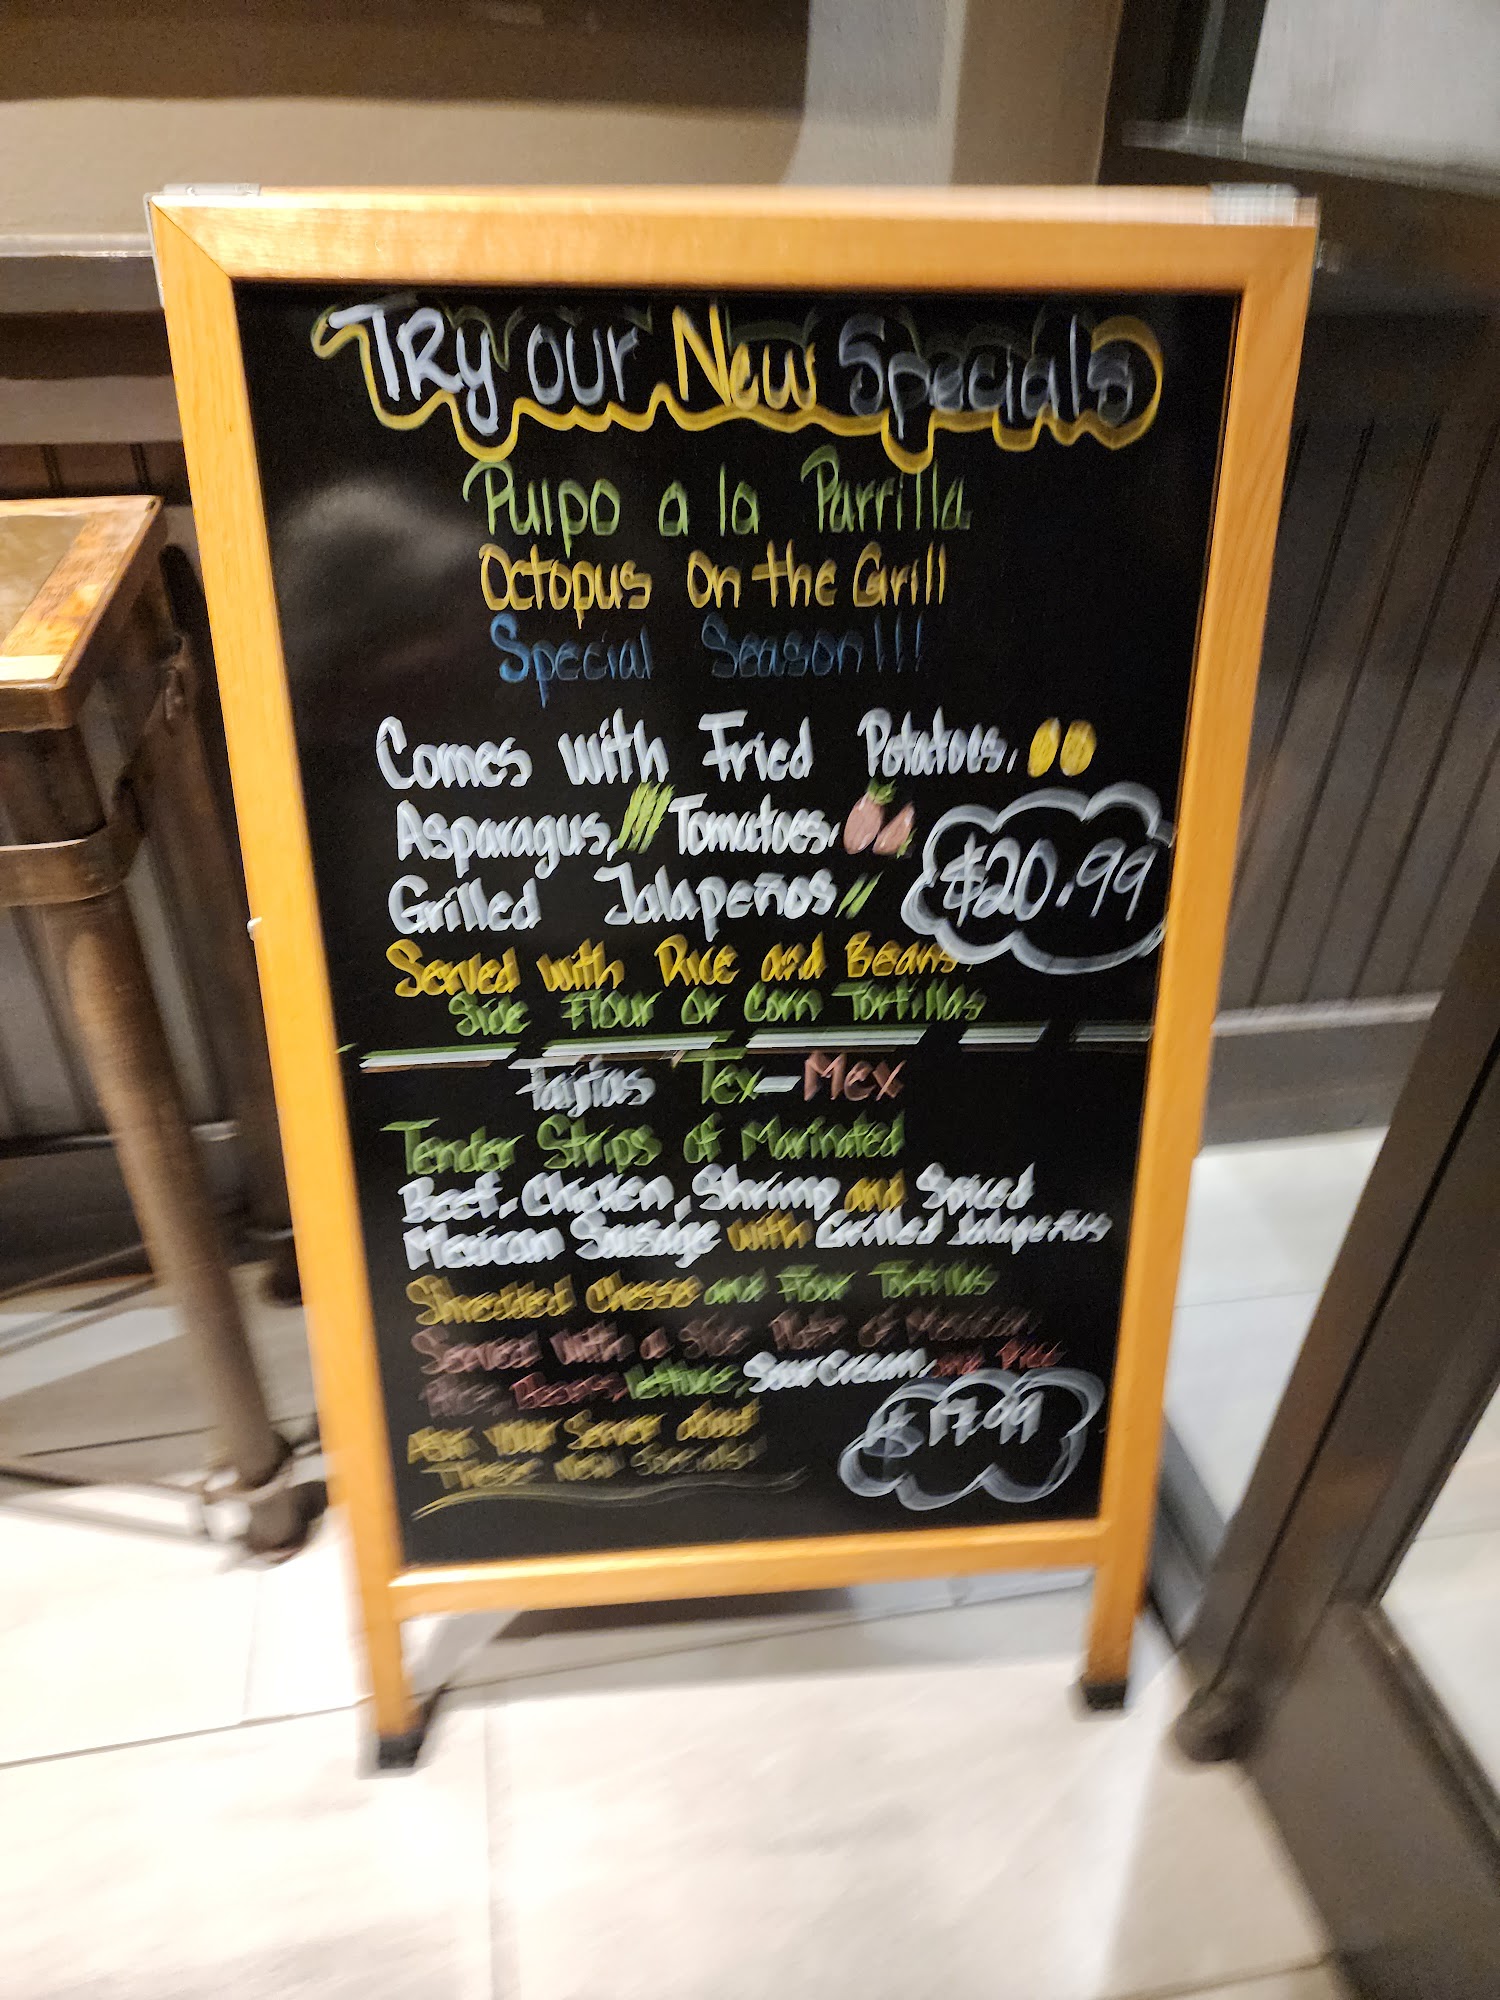 Try our New Specials
Pulpo a la Parrilla
Octopus on the Grill
Special Season!!!
Comes with Fried Potatoes,
Asparagus, Tomatoes,
Grilled Jalapeños
$20.99
Served with Rice and Beans.
Side Flour or Corn Tortillas
Fajitas Tex-Mex
Tender Strips of Marinated
Beef, Chicken, Shrimp and Spiced
Mexican Sausage with Grilled Jalapeños
Shredded Cheese and Flour Tortillas
Served with a Side Plate of Mexican
Rice, Beans, Lettuce, Sour Cream, and Pico
$17.99
Ask your Server about
These New Specials